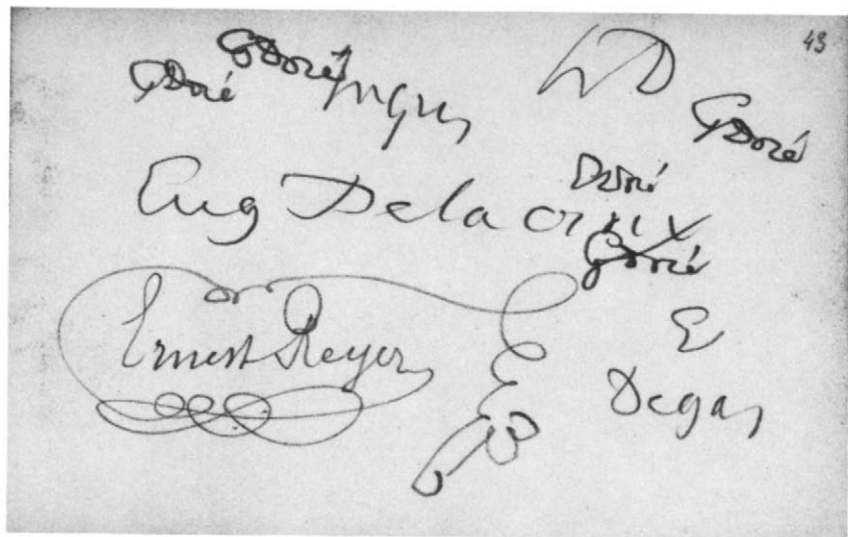 43
GDoré GDoré Ingres D GDoré
Doré
Eug Delacroix
GDoré
Ernest Reyer E
Degas